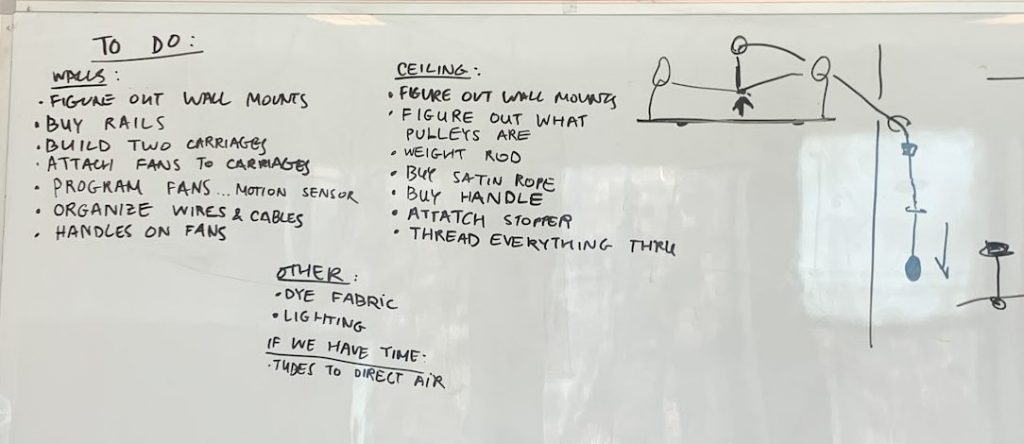 TO DO:
WALLS:
• FIGURE OUT WALL MOUNTS
• BUY RAILS
• BUILD TWO CARRIAGES
• ATTACH FANS TO CARRIAGES
• PROGRAM FANS ... MOTION SENSOR
• ORGANIZE WIRES & CABLES
• HANDLES ON FANS
CEILING:
• FIGURE OUT WALL MOUNTS
• FIGURE OUT WHAT
PULLEYS ARE
• WEIGHT ROD
• BUY SATIN ROPE
• BUY HANDLE
• ATTATCH STOPPER
• THREAD EVERYTHING THRU
OTHER:
• DYE FABRIC
• LIGHTING
IF WE HAVE TIME:
• TUBES TO DIRECT AIR